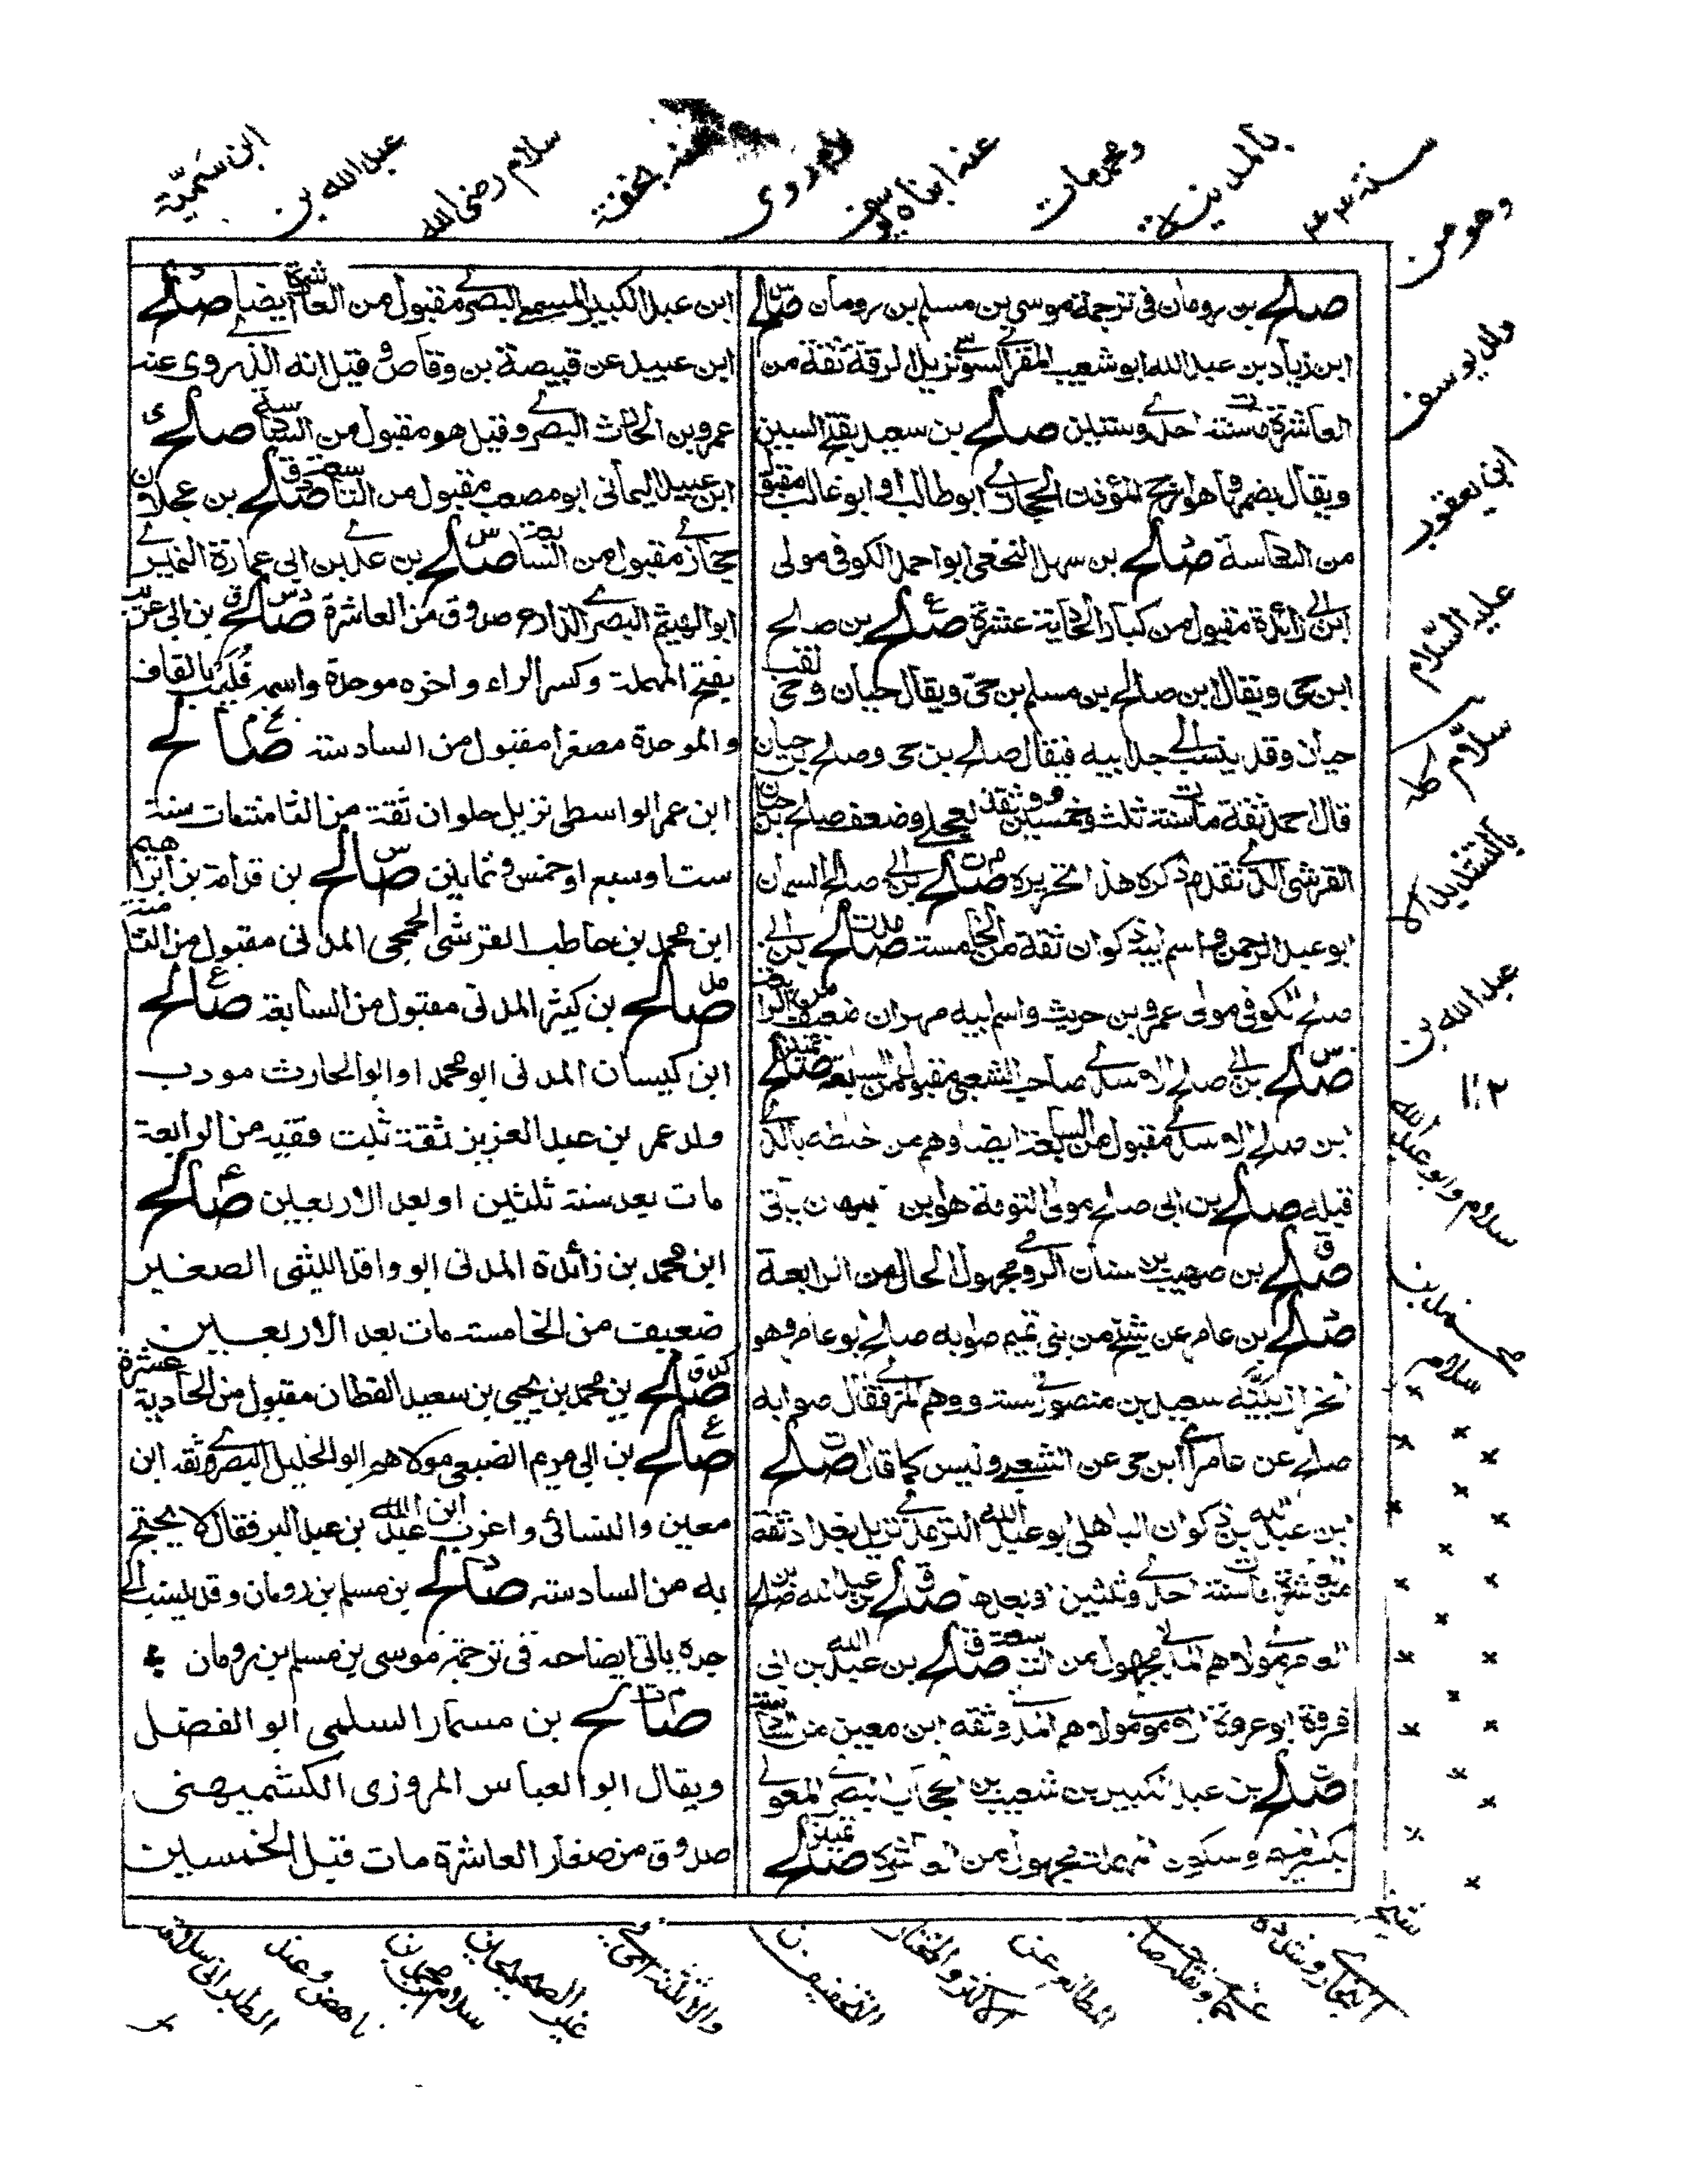 صالح بن رومان فی ترجمة موسی بن مسلم بن رومان صالح
ابن زیاد بن عبد الله ابو شعیب المقرئ السوسی نزیل الرقة ثقة من
العاشرة مات سنة احدی وستین صالح بن سعید بفتح السین
ویقال بضمها وهو ارجح المؤذن الحجازی ابو طالب او ابو غالب مقبول
من الخامسة صالح بن سهل النخعی ابو احمد الکوفی مولی
ابن ابی زائدة مقبول من کبار الحادیة عشرة صالح بن صالح
ابن حی ویقال ابن صالح بن مسلم بن حی ویقال حیان وحی لقب
حیان وقد ینسب الی جد ابیه فیقال صالح بن حی وصالح بن حیان
قال احمد ثقة ثقة مات سنة ثلث وخمسین ووثقه العجلی وضعف صالح بن حیان
القرشی الذی تقدم ذکره هذا تحریره صالح بن ابی صالح السمان
ابو عبد الرحمن واسم ابیه ذکوان ثقة من الخامسة صالح بن ابی
صالح الکوفی مولی عمرو بن حریث واسم ابیه مهران ضعیف من الرابعة
صالح بن ابی صالح الاسدی صاحب الشعبی مقبول من السابعة صالح
ابن صالح الاسدی مقبول من السابعة ایضا وهم من خلطه بالذی
قبله صالح بن ابی صالح مولی التومة هو ابن نبهان یاتی
صالح بن صهیب بن سنان الرومی مجهول الحال من الرابعة
صالح بن عامر عن شیخ من بنی تمیم صوابه صالح ابو عامر وهو
الخزاز بینه سعید بن منصور فی سننه ووهم المزی فقال صوابه
صالح عن عامر ای ابن حی عن الشعبی ولیس کما قال صالح
ابن عبد الله بن ذکوان الباهلی ابو عبد الله الترمذی نزیل بغداد ثقة
من العاشرة مات سنة احدی وثلثین او بعدها صالح بن عبد الله بن صالح
العامری مولاهم المدنی مجهول من التاسعة صالح بن عبد الله بن ابی
فروة ابو عروة الاموی مولاهم المدنی وثقه ابن معین من السادسة
صالح بن عبد الکبیر بن شعیب بن الحجاب البصری المعولی
بکسر المیم وسکون المهملة مجهول من العاشرة صالح تمییز
ابن عبد الکبیر المسمعی البصری مقبول من العاشرة ایضا صالح
ابن عبید عن قبیصة بن وقاص وقیل انه الذی روی عنه
عمرو بن الحارث البصری وقیل هو مقبول من السادسة صالح
ابن عبید الیمانی ابو مصعب مقبول من التاسعة صالح بن عجلان
حجازی مقبول من السابعة صالح بن عدی بن ابی عمارة النمیری
ابو الهیثم البصری الذارع صدوق من العاشرة صالح بن ابی عریب
بفتح المهملة وکسر الراء واخره موحدة واسمه قلیب بالقاف
والموحدة مصغرا مقبول من السادسة صالح
ابن عمر الواسطی نزیل حلوان ثقة من الثامنة مات سنة
ست او سبع او خمس وثمانین صالح بن قدامة بن ابراهیم
ابن محمد بن حاطب القرشی الجمحی المدنی مقبول من الثامنة
صالح بن کثیر المدنی مقبول من السابعة صالح
ابن کیسان المدنی ابو محمد او ابو الحارث مودب
ولد عمر بن عبد العزیز ثقة ثبت فقیه من الرابعة
مات بعد سنة ثلثین او بعد الاربعین صالح
ابن محمد بن زائدة المدنی ابو واقد اللیثی الصغیر
ضعیف من الخامسة مات بعد الاربعین
صالح بن محمد بن یحیی بن سعید القطان مقبول من الحادیة عشرة
صالح بن ابی مریم الضبعی مولاهم ابو الخلیل البصری وثقه ابن
معین والنسائی واغرب ابن عبد البر فقال لا یحتج
به من السادسة صالح بن مسلم بن رومان وقد ینسب الی
جده یاتی ایضاحه فی ترجمة موسی بن مسلم بن رومان
صالح بن مسمار السلمی ابو الفضل
ویقال ابو العباس المروزی الکشمیهنی
صدوق من صغار العاشرة مات قبل الخمسین
ابن سمیة
عبد الله بن
سلام رضی الله
عنه ابناه یوسف
ومحمد مات
بالمدینة
سنة ۴۳
وهو من
ولد یوسف
ابن یعقوب
علیه السلام
سلام کله
بالتشدید الا
عبد الله بن
۱۱۲
سلام وابو عبد الله
محمد بن
سلام
شیخ
البخاری وشدده
المطالع عن
الاکثر والمختار
التخفیف
غیر الصحیحین
سلام بن محمد بن
ناهض وعند
الطبرانی سلامة